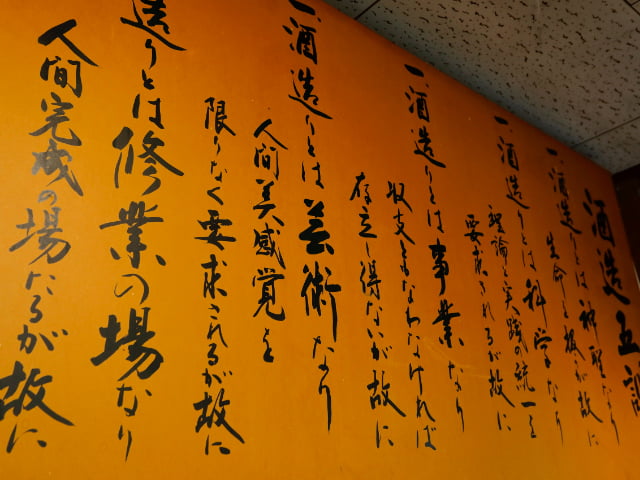 酒造五
一、酒造りとは神聖なり
生命を扱が故に
一、酒造りとは科学なり
理論と実践の統一を
要求されるが故に
一、酒造りとは事業なり
収支ともなわなければ
存立し得ないが故に
一、酒造りとは芸術なり
人間美感覚を
限りなく要求されるが故に
造りとは修業の場なり
人間完成の場たるが故に